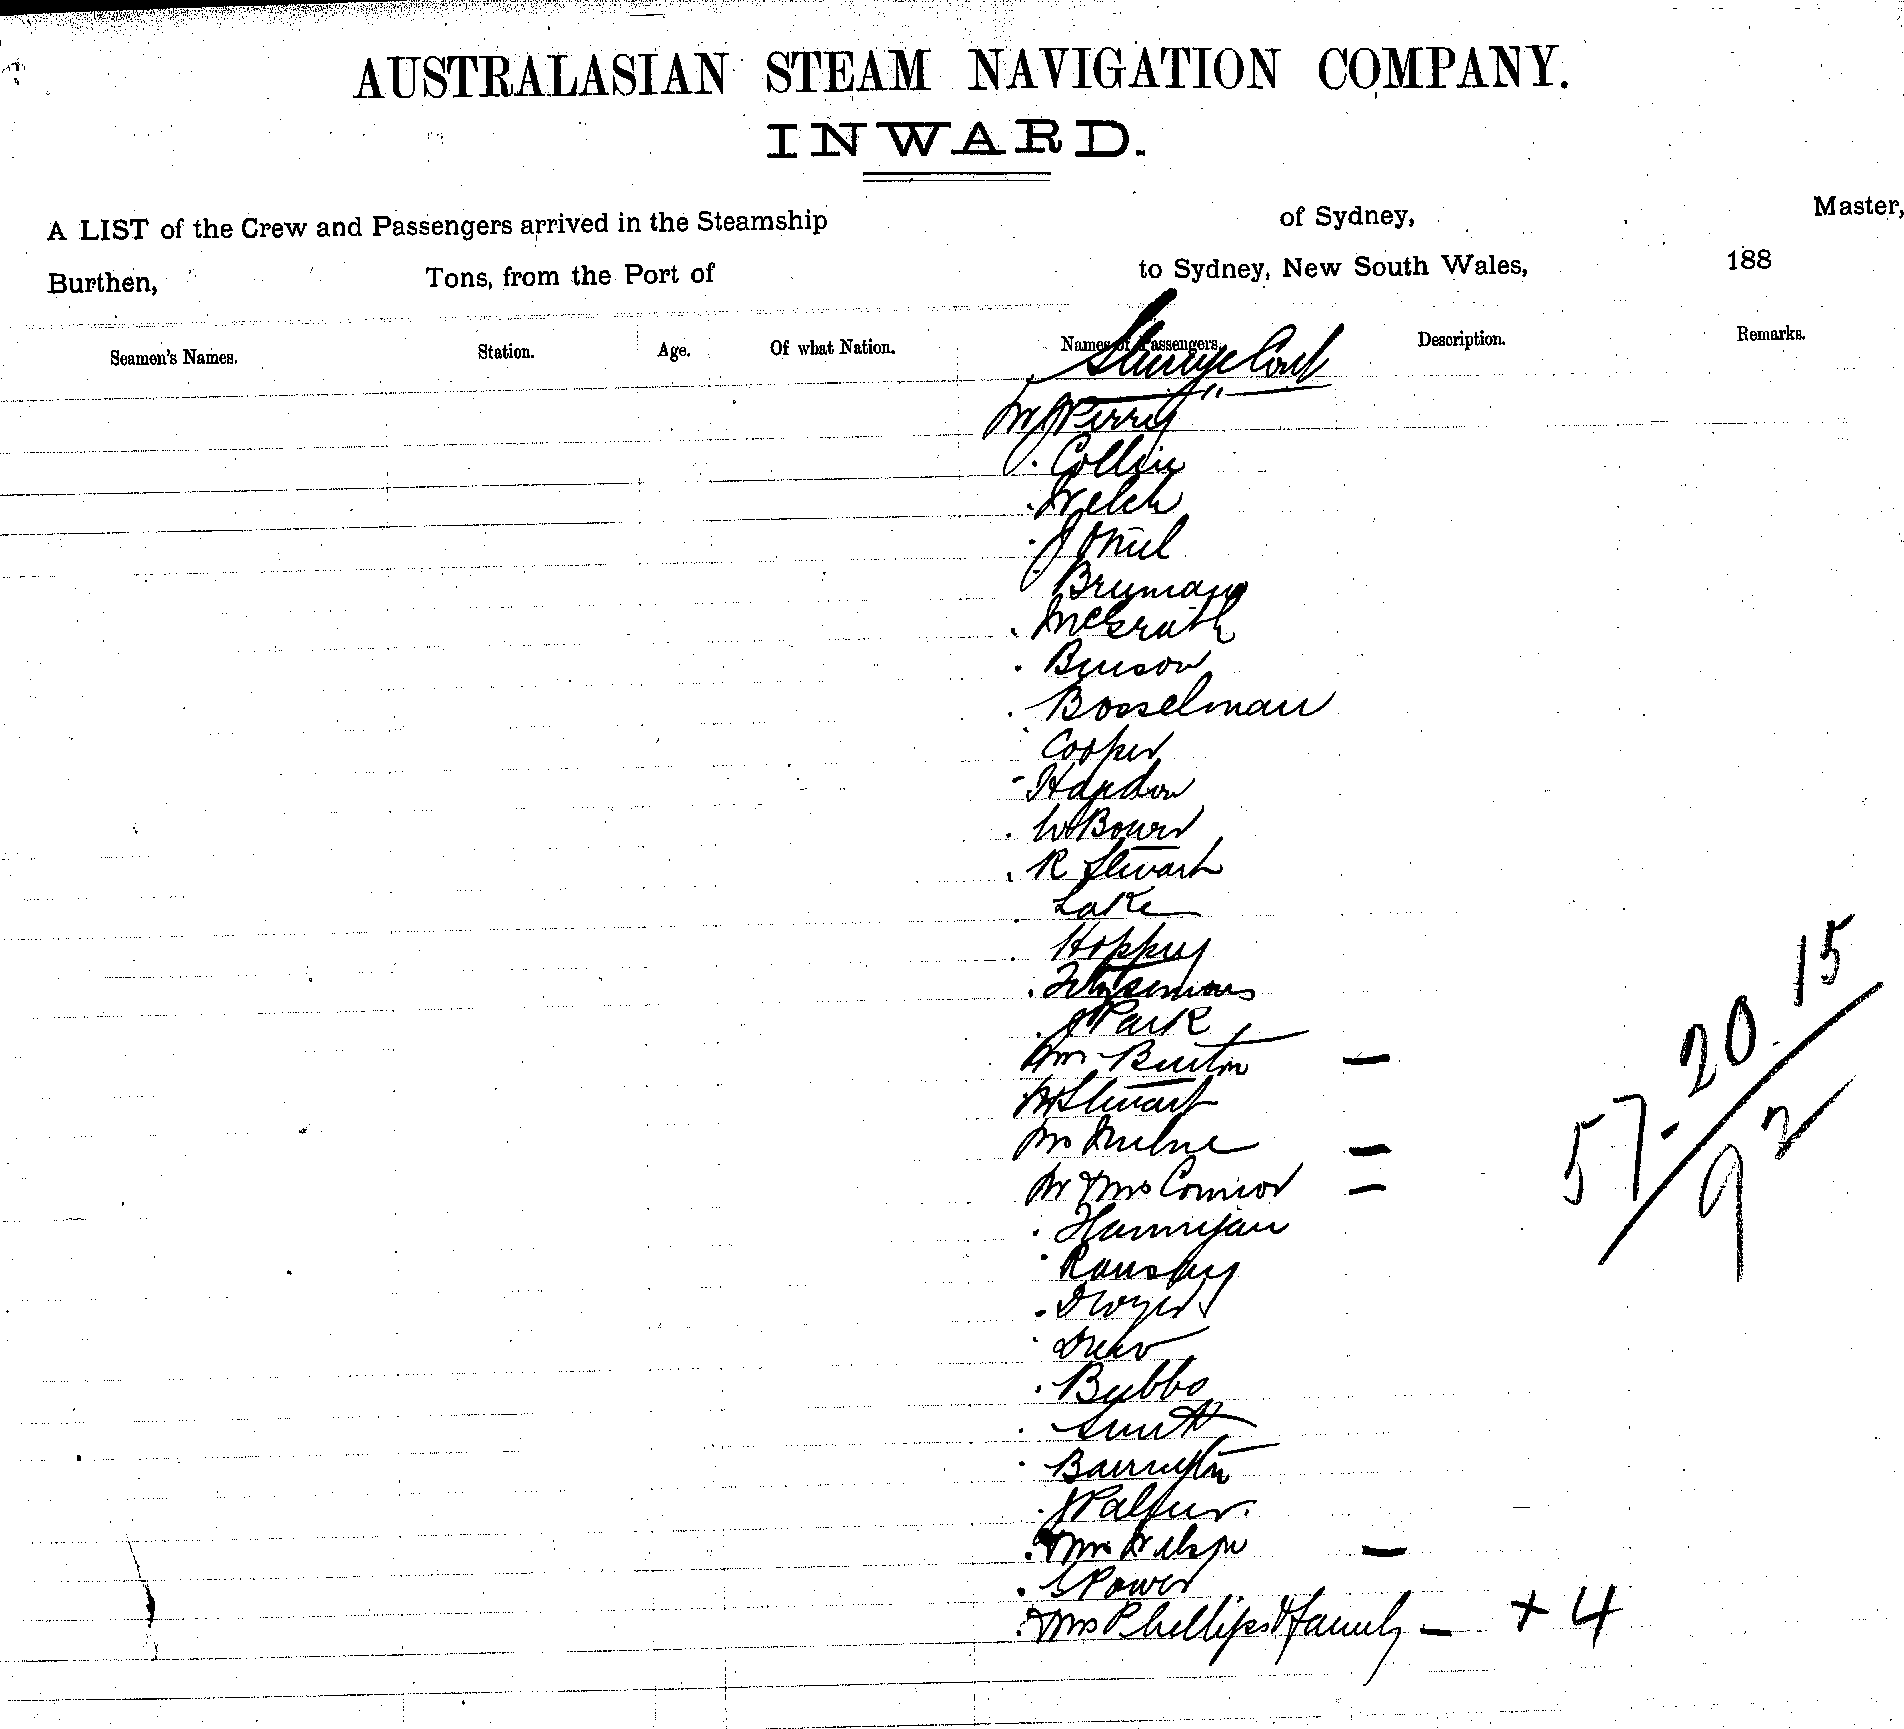 AUSTRALASIAN STEAM NAVIGATION COMPANY.
INWARD.
A LIST of the Crew and Passengers arrived in the Steamship of Sydney, Master,
Burthen, Tons, from the Port of to Sydney, New South Wales, 188
Seamen's Names. Station. Age. Of what Nation. Names of Passengers. Description. Remarks.
Steerage Cont
Mr J Perry
. Collin
. Welch
. J ONeil
. Bryman
. McGrath
. Benson
. Bosselman
Cooper
- Haydon
. W Bower
. R Stewart
Lake
. Hoppey
. Fitzsimons
. J Park
Mrs Burton —
Mr Stewart
Mrs Milne —
Mr & Mrs Connor —
. Hannigan
. Ramsay
. Dwyer
. Drew
. Bubbs
. Smith
. Barrington
. J Palfur.
. Mrs Wilson —
. Power
. Mrs Phellips & family — + 4
57. 20. 15
92